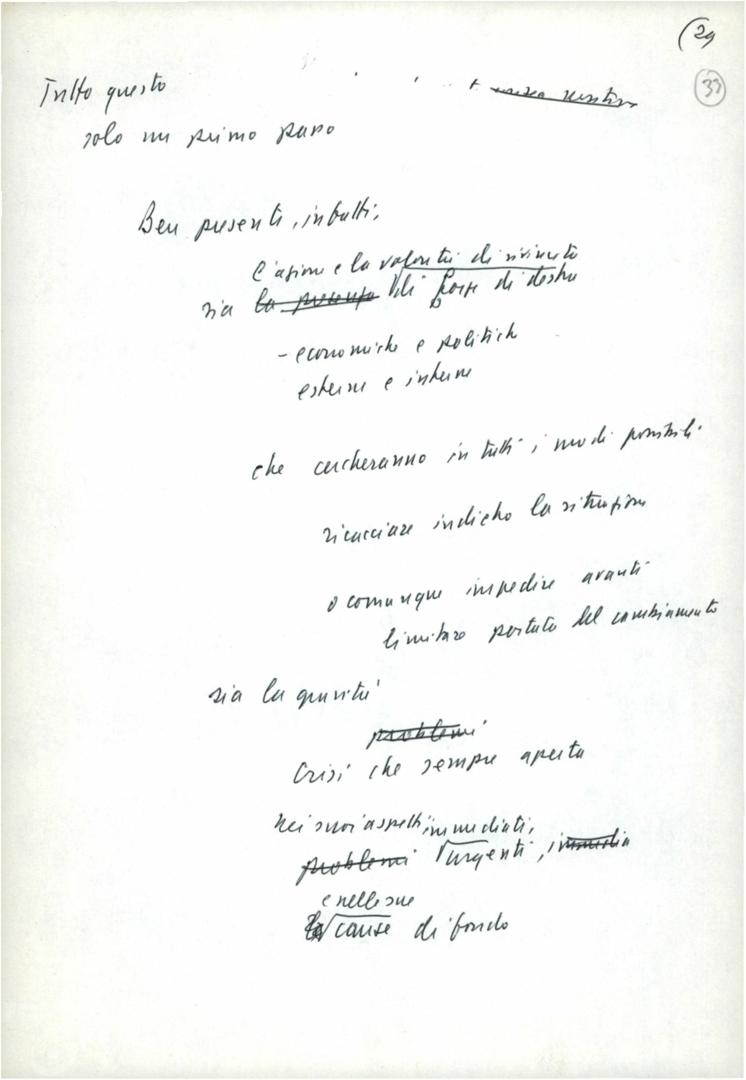 (29
33
Tutto questo
solo un primo passo
Ben presenti, infatti,
l'azione e la volontà di rivincita
sia la presenza di forze di destra
- economiche e politiche
esterne e interne
che cercheranno in tutti i modi possibili
ricacciare indietro la situazione
o comunque impedire avanti
limitare portata del cambiamento
sia la gravità
problemi
Crisi che sempre aperta
nei suoi aspetti immediati,
problemi urgenti, immedia
e nelle sue
cause di fondo